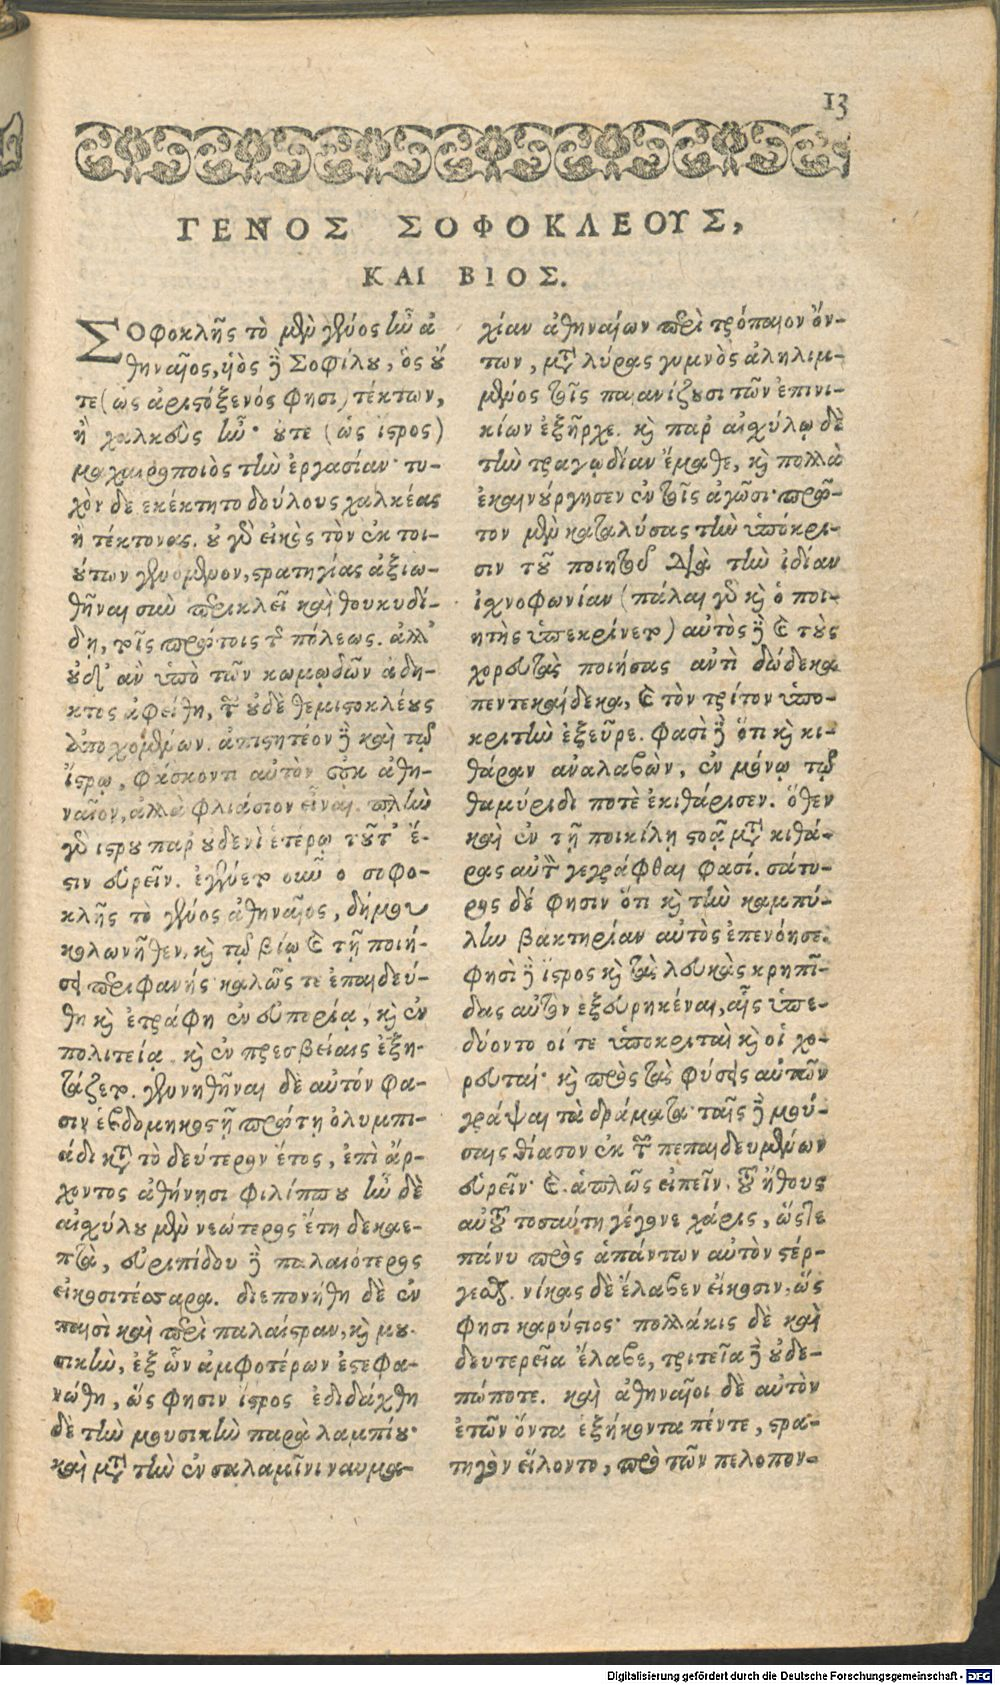 13
ΓΕΝΟΣ ΣΟΦΟΚΛΕΟΥΣ,
ΚΑΙ ΒΙΟΣ.
ΣΟφοκλῆς τὸ μὲν γένος ἦν ἀ
θηναῖος, υἱὸς δὲ Σοφίλου, ὃς οὔ
τε (ὡς ἀριστόξενός φησι) τέκτων,
ἢ χαλκεὺς ἦν· οὔτε (ὡς ἴστρος)
μαχαιροποιὸς τὴν ἐργασίαν· τυ-
χὸν δὲ ἐκέκτητο δούλους χαλκέας
ἢ τέκτονας. οὐ γὰρ εἰκὸς τὸν ἐκ τοι-
ούτων γενόμενον, στρατηγίας ἀξιω-
θῆναι σὺν περικλεῖ καὶ θουκυδί-
δῃ, τοῖς πρώτοις τῆς πόλεως. ἀλλ'
οὐδ' ἂν ὑπὸ τῶν κωμῳδῶν ἄδη-
κτος ἀφείθη, τῶν οὐδὲ θεμιστοκλέους
ἀποχομένων. ἀπιστητέον δὲ καὶ τῷ
ἴστρῳ, φάσκοντι αὐτὸν οὐκ ἀθη-
ναῖον, ἀλλὰ φλιάσιον εἶναι. πλὴν
γὰρ ἴστρου παρ' οὐδενὶ ἑτέρῳ τοῦτ' ἔ-
στιν εὑρεῖν. ἐγένετο οὖν ὁ σοφο-
κλῆς τὸ γένος ἀθηναῖος, δήμου
κολωνῆθεν, καὶ τῷ βίῳ καὶ τῇ ποιή-
σει περιφανής· καλῶς τε ἐπαιδεύ-
θη καὶ ἐτράφη ἐν εὐπορίᾳ, καὶ ἐν
πολιτείᾳ καὶ ἐν πρεσβείαις ἐξη-
τάζετο. γεννηθῆναι δὲ αὐτόν φα-
σιν ἑβδομηκοστῇ πρώτῃ ὀλυμπι-
άδι κατὰ τὸ δεύτερον ἔτος, ἐπὶ ἄρ-
χοντος ἀθήνησι φιλίππου ἦν δὲ
αἰσχύλου μὲν νεώτερος ἔτη δεκαε-
πτὰ, εὐριπίδου δὲ παλαιότερος
εἰκοσιτέσσαρα. διεπονήθη δὲ ἐν
παισὶ καὶ περὶ παλαίστραν, καὶ μου-
σικὴν, ἐξ ὧν ἀμφοτέρων ἐστεφα-
νώθη, ὥς φησιν ἴστρος ἐδιδάχθη
δὲ τὴν μουσικὴν παρὰ λαμπίου·
καὶ μετὰ τὴν ἐν σαλαμῖνι ναυμα-
χίαν ἀθηναίων περὶ τρόπαιον ὄν-
των, μετὰ λύρας γυμνὸς ἀληλιμ-
μένος τοῖς παιανίζουσι τῶν ἐπινι-
κίων ἐξῆρχε. καὶ παρ' αἰσχύλῳ δὲ
τὴν τραγῳδίαν ἔμαθε, καὶ πολλὰ
ἐκαινούργησεν ἐν τοῖς ἀγῶσι· πρῶ-
τον μὲν καταλύσας τὴν ὑπόκρι-
σιν τοῦ ποιητοῦ διὰ τὴν ἰδίαν
ἰχνοφωνίαν (πάλαι γὰρ καὶ ὁ ποι-
ητὴς ὑπεκρίνετο) αὐτὸς δὲ καὶ τοὺς
χορευτὰς ποιήσας ἀντὶ δώδεκα
πεντεκαίδεκα, καὶ τὸν τρίτον ὑπο-
κριτὴν ἐξεῦρε. φασὶ δὲ ὅτι καὶ κι-
θάραν ἀναλαβὼν, ἐν μόνῳ τῷ
θαμύριδι ποτὲ ἐκιθάρισεν. ὅθεν
καὶ ἐν τῇ ποικίλῃ στοᾷ μετὰ κιθά-
ρας αὐτὸν γεγράφθαι φασί. σάτυ-
ρος δέ φησιν ὅτι καὶ τὴν καμπύ-
λην βακτηρίαν αὐτὸς ἐπενόησε.
φησὶ δὲ ἴστρος καὶ τὰς λευκὰς κρηπῖ-
δας αὐτὸν ἐξευρηκέναι, αἷς ὑπε-
δύοντο οἵ τε ὑποκριταὶ καὶ οἱ χο-
ρευταί· καὶ πρὸς τὰς φύσεις αὐτῶν
γράψαι τὰ δράματα· ταῖς δὲ μού-
σαις θίασον ἐκ τῶν πεπαιδευμένων
εὑρεῖν· καὶ ἁπλῶς εἰπεῖν. τοῦ ἤθους
αὐτοῦ τοσαύτη γέγονε χάρις, ὥστε
πάνυ πρὸς ἁπάντων αὐτὸν στέρ-
γεσθαι. νίκας δὲ ἔλαβεν εἴκοσιν, ὥς
φησι καρύστιος· πολλάκις δὲ καὶ
δευτερεῖα ἔλαβε, τριτεῖα δὲ οὐδε-
πώποτε. καὶ ἀθηναῖοι δὲ αὐτὸν
ἐτῶν ὄντα ἑξήκοντα πέντε, στρα-
τηγὸν εἵλοντο, πρὸ τῶν πελοπον-
Digitalisierung gefördert durch die Deutsche Forschungsgemeinschaft - DFG